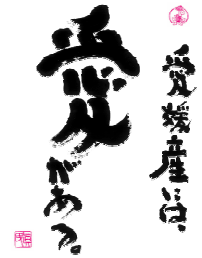 愛媛産には、
愛があるっ。